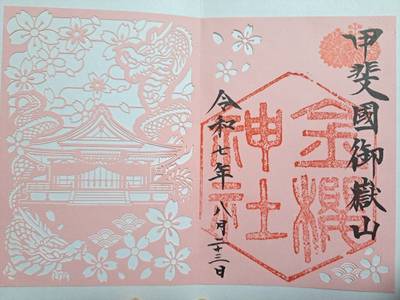 甲斐國御嶽山
金櫻
神社
令和七年八月二十三日